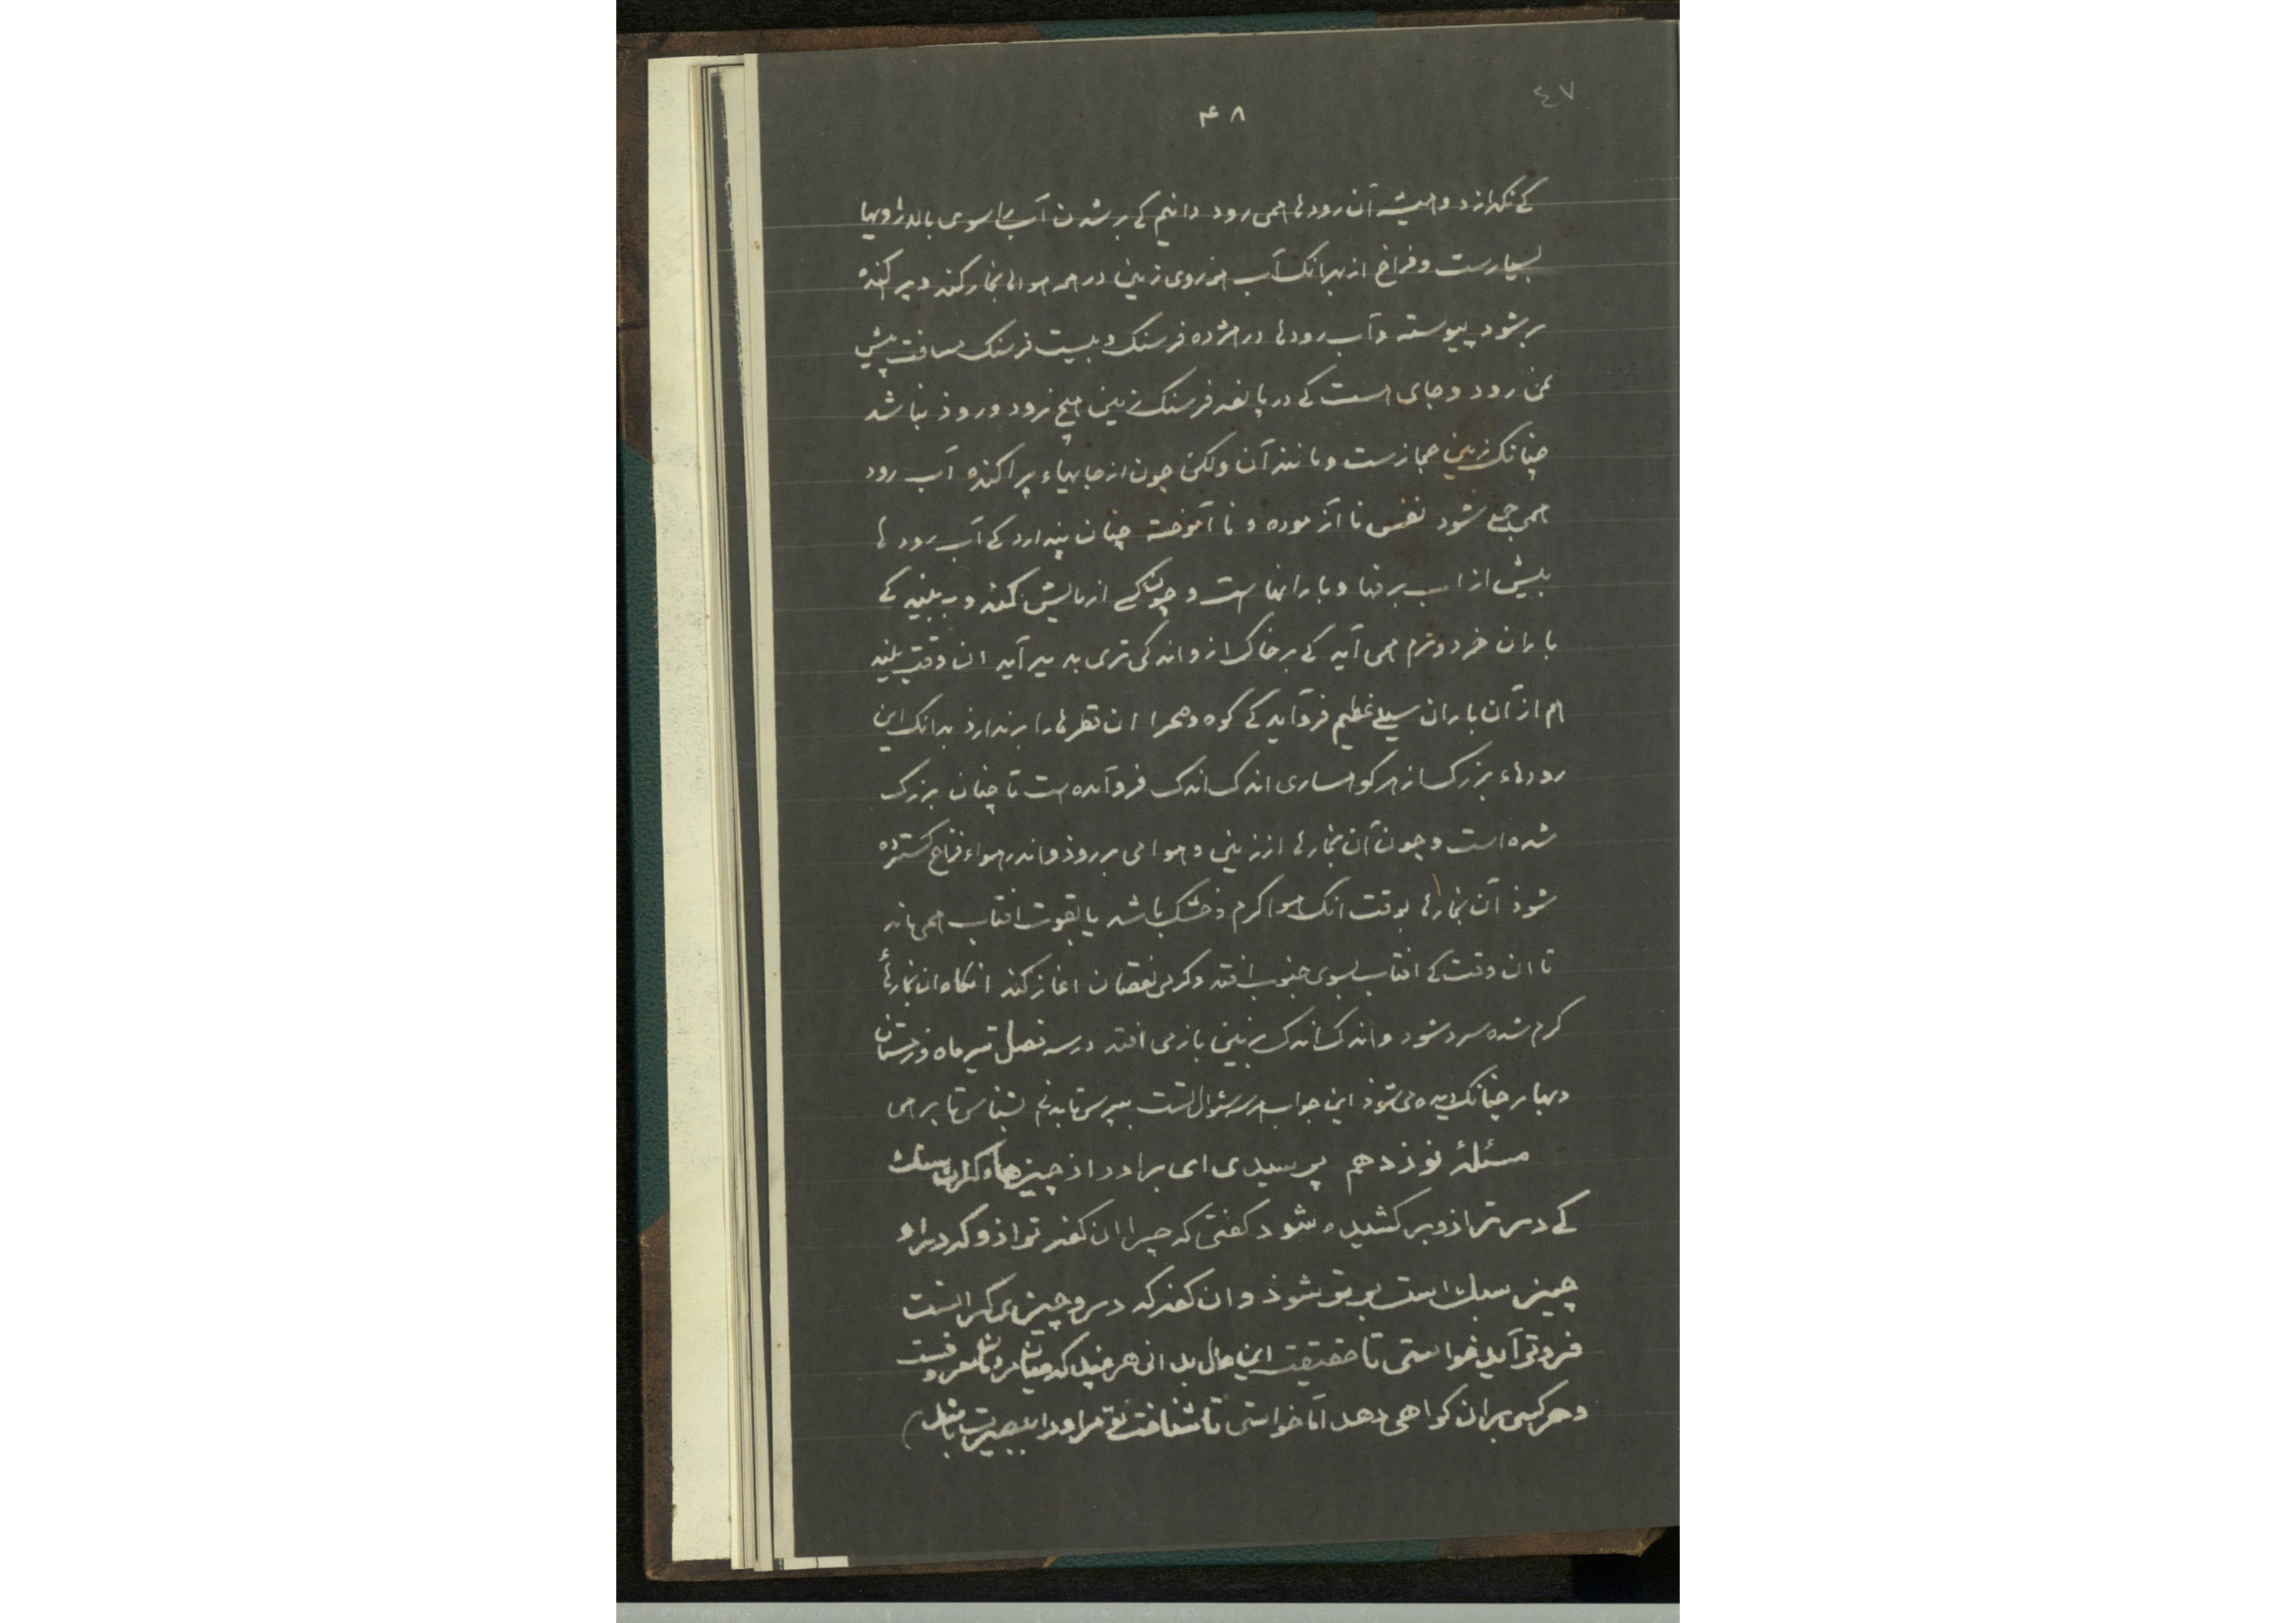 ٤٧
۴۸
کے نکدازد و همیشه آن رودها همی رود دانیم کے بر شدن آب را سوی بالا رویها
بسیارست و فراخ از بهر انک آب از روی زمین در همه هوا بخار کند و پراکنده
بر شود پیوسته و آب رودها در هژده فرسنک و بیست فرسنک مسافت پیش
نمی رود و جای هست کے در پانصد فرسنک زمین هیچ نرود و روذ نباشد
چنانک زمین حجازست و مانند آن ولکن چون از جایهاء پراکنده آب رود
همی جمع شود نفس نا آزموده و نا آموخته چنان پندارد کے آب رودها
بیش از اب برفها و بارانهاست و چون کسے ازمایش کند و ببیند کے
باران خرد و نرم همی آید کے بر خاک ازو اندکی تری بدید آید ان وقت بیند
هم از آن باران سیلے عظیم فروآید کے کوه و صحرا ان قطرها را برندارذ بدانک این
رودهاء بزرک از هر کوهساری اندک اندک فروآمده ست تا چنان بزرک
شده است و چون آن بخارها از زمین و هوا می برروذ و اندر هواء فراخ کسترده
شوذ آن بخارها بوقت انک هوا کرم و خشک باشد یا بقوت افتاب همی ماند
تا ان وقت کے افتاب بسوی جنوب افتد و کرمی نقصان اغاز کند انکاه ان بخارهاء
کرم شده سرد شود و اندک اندک بزمین باز می افتد در سه فصل تیرماه و زمستان
و بهار چنانک دیده می شوذ این جواب هر سه سئوال است بپرس تا بدانی بشناس تا برهی
مسئلهٔ نوزدهم پرسیدی ای برادر از چیزهاء کران و سبک
کے در ترازو بر کشیده شود کفتی که چرا ان کفه ترازو که درو
چیز سبک است برتر شوذ و ان کفه که درو چیزی کران است
فروتر آید خواستی تا حقیقت این حال بدانی هر چند که
و هر کسی بران کواهی دهد اما خواستی تا شناخت تو مر اورا ببصیرت باشد